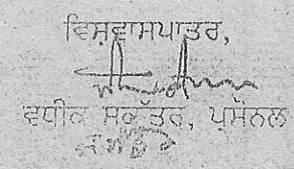 ਵਿਸ਼ਵਾਸਪਾਤਰ,
ਵਧੀਕ ਸਕੱਤਰ, ਪ੍ਰਸੋਨਲ